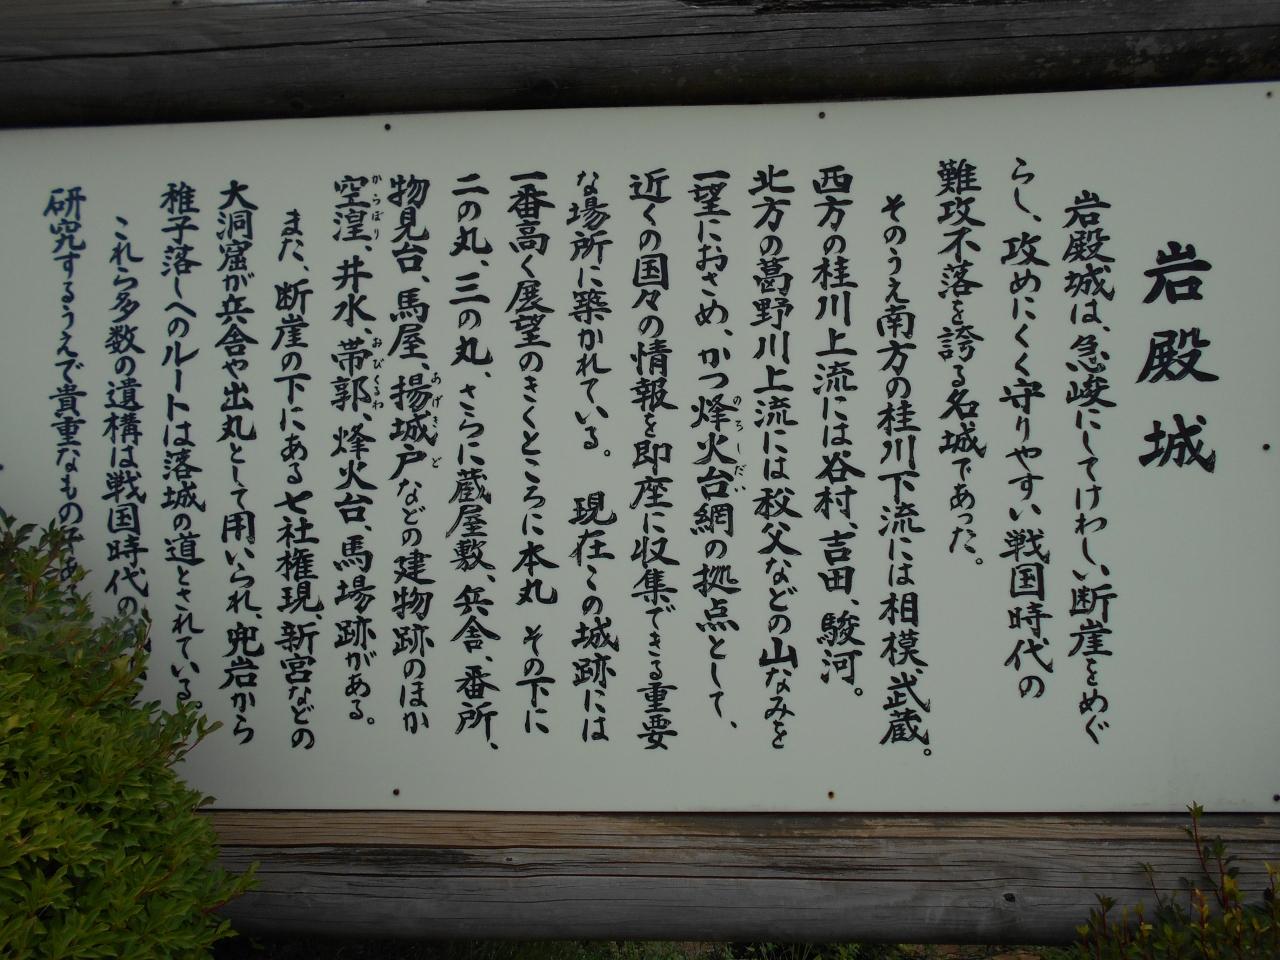 岩殿城
岩殿城は、急峻にしてけわしい断崖をめぐ
らし、攻めにくく守りやすい戦国時代の
難攻不落を誇る名城であった。
そのうえ南方の桂川下流には相模、武蔵。
西方の桂川上流には谷村、吉田、駿河。
北方の葛野川上流には秩父などの山なみを
一望におさめ、かつ烽火台網の拠点として、
のろしだい
近くの国々の情報を即座に収集できる重要
な場所に築かれている。 現在この城跡には
一番高く展望のきくところに本丸 その下に
二の丸、三の丸、さらに蔵屋敷、兵舎、番所、
物見台、馬屋、揚城戸などの建物跡のほか
あげきど
空湟、井水、帯郭、烽火台、馬場跡がある。
からぼり おびくるわ
また、断崖の下にある七社権現、新宮などの
大洞窟が兵舎や出丸として用いられ、兜岩から
稚子落しへのルートは落城の道とされている。
これら多数の遺構は戦国時代の
研究するうえで貴重なもの